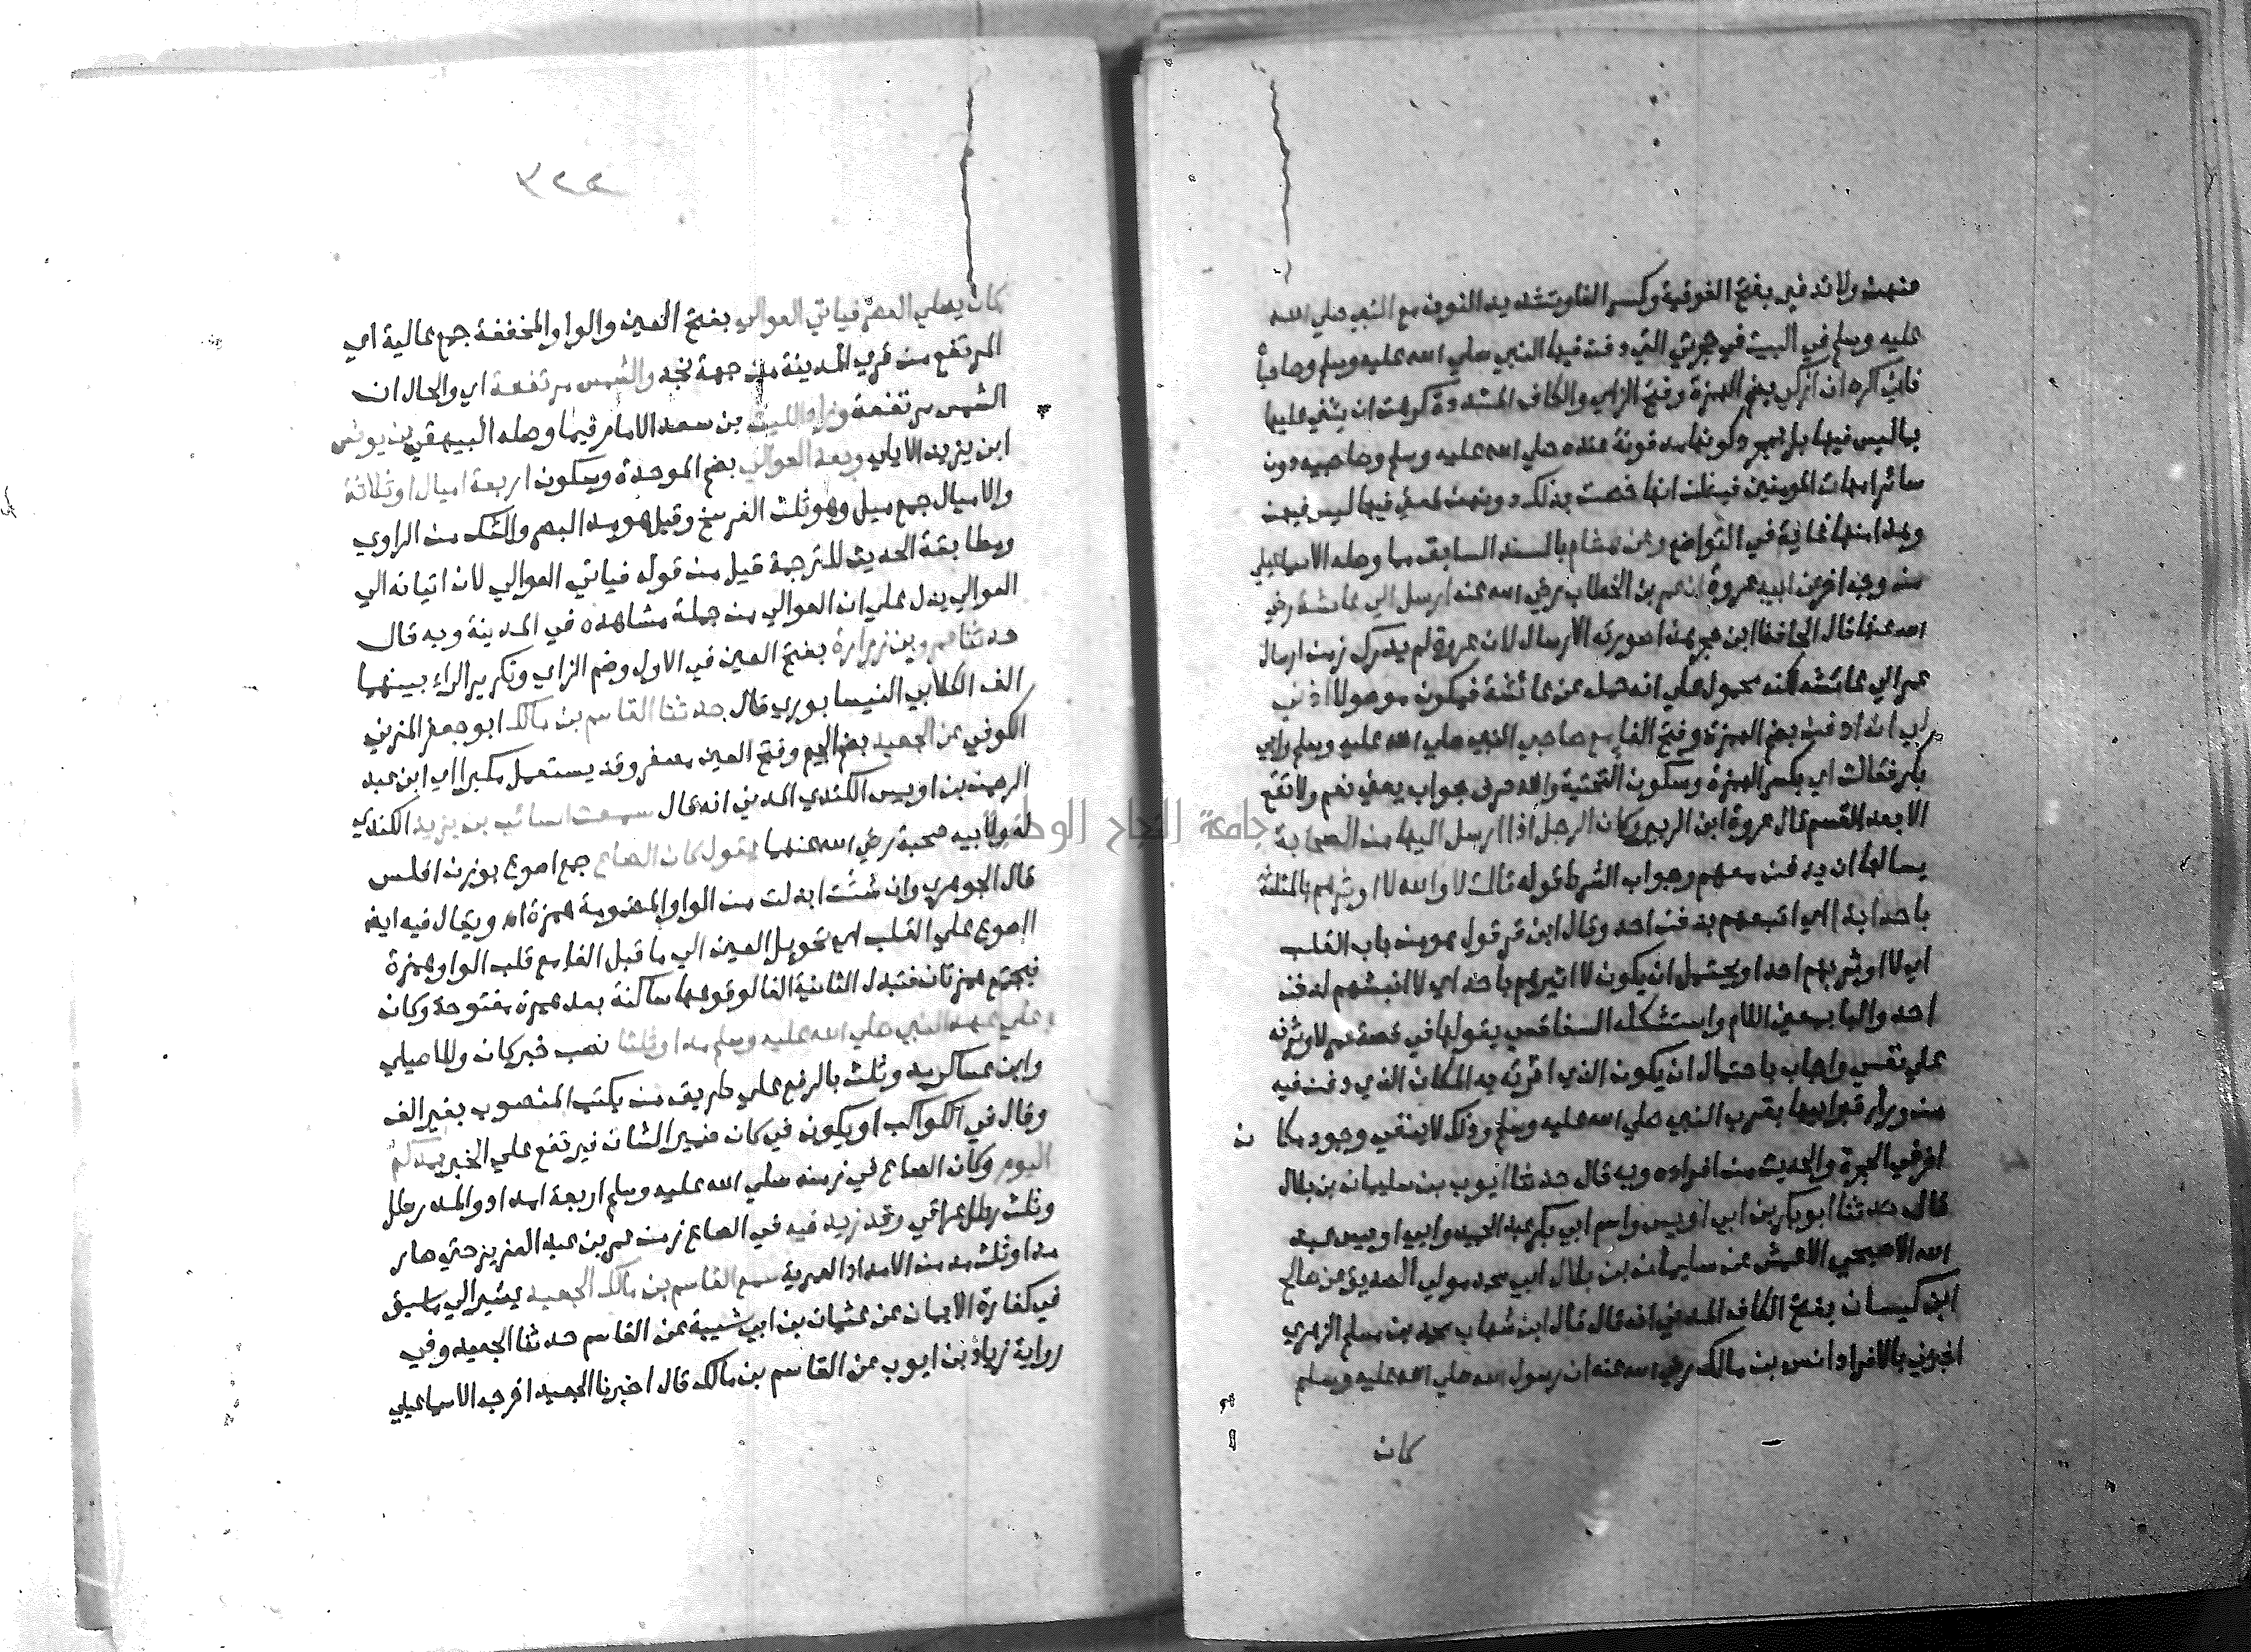 منهن ولا تدفني بفتح الفوقية وكسر الفا وتشديد النون مع النبي صلي الله
عليه وسلم في البيت في حجرتي التي دفن فيها النبي صلي الله عليه وسلم وصاحباه
فاني اكره ان ازكي بضم الهمزة وفتح الزاي والكاف المشددة كرهت ان يثني عليها
بما ليس فيها بل بمجرد كونها مدفونة عنده صلي الله عليه وسلم وصاحبيه دون
سائر امهات المومنين فيظن انها خصت بذلك دونهن لمعني فيها ليس فيهن
وهذا منها غاية في التواضع وعن هشام بالسند السابق مما وصله الاسماعيلي
من وجه اخر عن ابيه عروة ان عمر بن الخطاب رضي الله عنه ارسل الي عائشة رضي
الله عنها قال الحافظ ابن حجر هذا صورته الارسال لان عروة لم يدرك زمن ارسال
عمر الي عائشة لكنه محمول علي انه حمله عن عائشة فيكون موصولا اذني
لي ان ادفن بضم الهمزة وفتح الفا مع صاحبي النبي صلي الله عليه وسلم وابي
بكر فقالت اي بكسر الهمزة وسكون التحتية والله حرف جواب بمعني نعم ولا تقع
الا بعد القسم قال عروة ابن الزبير وكان الرجل اذا ارسل اليها من الصحابة
يسالها ان يدفن معهم وجواب الشرط قوله قالت لا والله لا اوثرهم بالمثلثة
باحد ابدا اي اتبعهم بدفن احد وقال ابن قرقول هو من باب القلب
اي لا اوثر بهم احدا ويحتمل ان يكون لا اثيرهم باحد اي لا انبشهم لدفن
احد والبا بمعني اللام واستشكله السفاقسي بقولها في قصة عمر لاوثرنه
علي نفسي واجاب باحتمال ان يكون الذي اثرته به المكان الذي دفن فيه
من ورأ قبر ابيها بقرب النبي صلي الله عليه وسلم وذلك لا ينفي وجود مكا ن
اخر في الحجرة والحديث من افراده وبه قال حدثنا ايوب بن سليمان بن بلال
قال حدثنا ابو بكر بن ابي اويس واسم ابي بكر عبد الحميد وابي اويس عبد
الله الاصبحي الاعمش عن سليمان بن بلال ابي محمد مولي الصديق عن صالح
ابن كيسان بفتح الكاف المدني انه قال قال ابن شهاب محمد بن مسلم الزهري
اخبرني بالافراد انس بن مالك رضي الله عنه ان رسول الله صلي الله عليه وسلم
كان
٣٢٢
كان يصلي العصر فياتي العوالي بفتح العين والواو المخففة جمع عالية اي
المرتفع من قري المدينة من جهة نجد والشمس مرتفعة اي والحال ان
الشمس مرتفعة وزاد الليث بن سعد الامام فيما وصله البيهقي بن يونس
ابن يزيد الايلي وبعد العوالي بضم الموحدة وسكون اربعة اميال او ثلاثة
والاميال جمع ميل وهو ثلث الفرسخ وقيل هو مد البصر والشك من الراوي
ومطابقة الحديث للترجمة قيل من قوله فياتي العوالي لان اتيانه الي
العوالي يدل علي ان العوالي من جملة مشاهده في المدينة وبه قال
حدثنا عمرو بن زرارة بفتح العين في الاول وضم الزاي وتكرير الراء بينهما
الف الكلابي النيسابوري قال حدثنا القاسم بن مالك ابو جعفر المزني
الكوفي عن الجعيد بضم الجيم وفتح العين مصغر وقد يستعمل مكبرا اي ابن عبد
الرحمن بن اويس الكندي المدني انه قال سمعت السائب بن يزيد الكندي
له ولابيه صحبة رضي الله عنهما يقول كان الصاع جمع اصوع بوزن افلس
قال الجوهري وان شئت ابدلت من الواو المضمومة همزة اه ويقال فيه ايضا
اصوع علي القلب اي تحويل العين الي ما قبل الفا مع قلب الواو همزة
فيجتمع همزتان فتبدل الثانية الفا لوقوعها ساكنة بعد همزة مفتوحة وكان
علي عهد النبي صلي الله عليه وسلم مدا وثلثا نصب خبر كان وللاصيلي
وابن عساكر مد وثلث بالرفع علي طريق من يكتب المنصوب بغير الف
وقال في الكواكب او يكون في كان ضمير الشان فيرتفع علي الخبر بمدكم
اليوم وكان الصاع في زمنه صلي الله عليه وسلم اربعة امداد والمد رطل
وثلث رطل عراقي وقد زيد فيه في الصاع زمن عمر بن عبد العزيز حتي صار
مدا وثلث مد من الامداد العمرية سمع القاسم بن مالك الجعيد يشير الي ما سبق
في كفارة الايمان عن عثمان بن ابي شيبة عن القاسم حدثنا الجعيد وفي
رواية زياد بن ايوب عن القاسم بن مالك قال اخبرنا الجعيد اخرجه الاسماعيلي
جامعة النجاح الوطنية